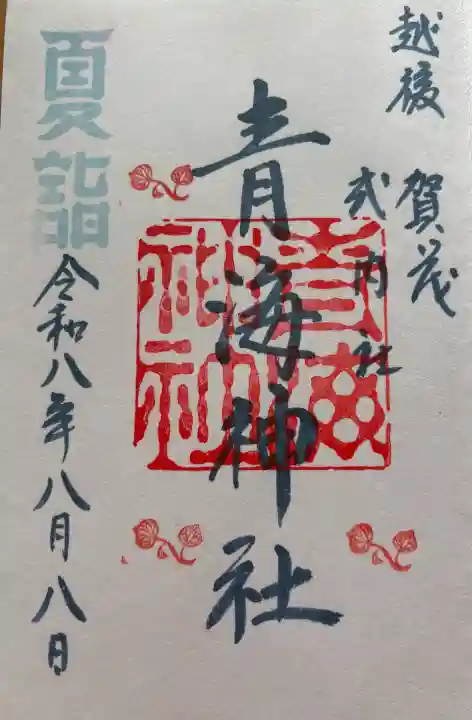 越後
賀茂
式内社
青海神社
青海神社
夏詣
令和八年八月八日